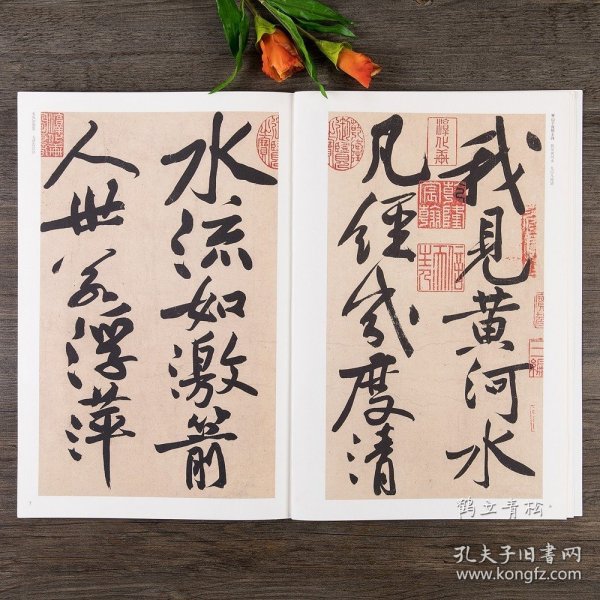 我見黃河水
凡經幾度清
水流如激箭
人世若浮萍
鶴立青松
孔夫子旧书网
www.kongfz.com